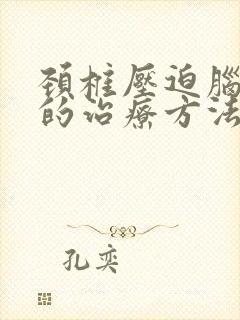 頚椎壓迫腦
的治療方法
孔奕